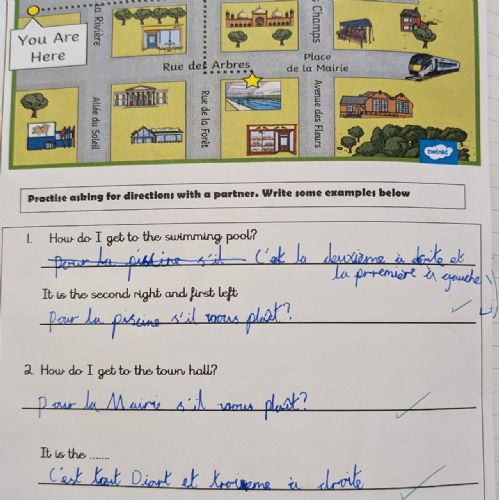 La Rivière
s Champs
You Are
Here
Rue des Arbres
Place
de la Mairie
Allée du Soleil
Rue de la Forêt
Avenue des Fleurs
twinkl
Practise asking for directions with a partner. Write some examples below
1. How do I get to the swimming pool?
pour la piscine s'il C'est la deuxième à droite et
la prremière à gauche
It is the second right and first left
Pour la piscine s'il vous plaît?
2. How do I get to the town hall?
Pour la Mairie s'il vous plaît?
It is the .......
C'est tout Diort et troixeme à droite